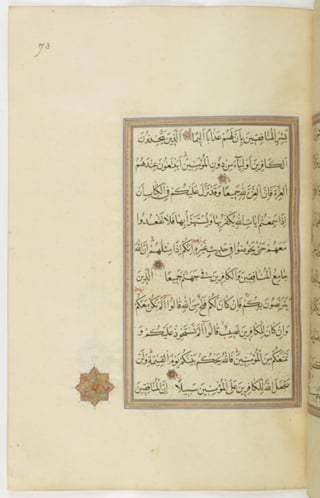 73
بَشِّرِ الْمُنَافِقِينَ بِأَنَّ لَهُمْ عَذَابًا أَلِيمًا الَّذِينَ يَتَّخِذُونَ
الْكَافِرِينَ أَوْلِيَاءَ مِنْ دُونِ الْمُؤْمِنِينَ أَيَبْتَغُونَ عِنْدَهُمُ
الْعِزَّةَ فَإِنَّ الْعِزَّةَ لِلَّهِ جَمِيعًا وَقَدْ نَزَّلَ عَلَيْكُمْ فِي الْكِتَابِ أَنْ
إِذَا سَمِعْتُمْ آيَاتِ اللَّهِ يُكْفَرُ بِهَا وَيُسْتَهْزَأُ بِهَا فَلَا تَقْعُدُوا
مَعَهُمْ حَتَّى يَخُوضُوا فِي حَدِيثٍ غَيْرِهِ إِنَّكُمْ إِذًا مِثْلُهُمْ إِنَّ اللَّهَ
جَامِعُ الْمُنَافِقِينَ وَالْكَافِرِينَ فِي جَهَنَّمَ جَمِيعًا الَّذِينَ
يَتَرَبَّصُونَ بِكُمْ فَإِنْ كَانَ لَكُمْ فَتْحٌ مِنَ اللَّهِ قَالُوا أَلَمْ نَكُنْ مَعَكُمْ
وَإِنْ كَانَ لِلْكَافِرِينَ نَصِيبٌ قَالُوا أَلَمْ نَسْتَحْوِذْ عَلَيْكُمْ وَ
نَمْنَعْكُمْ مِنَ الْمُؤْمِنِينَ فَاللَّهُ يَحْكُمُ بَيْنَكُمْ يَوْمَ الْقِيمَةِ وَلَنْ
يَجْعَلَ اللَّهُ لِلْكَافِرِينَ عَلَى الْمُؤْمِنِينَ سَبِيلًا إِنَّ الْمُنَافِقِينَ